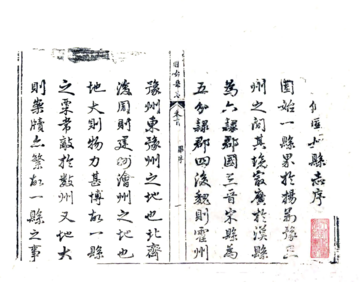 固始縣志序
固始一縣界於揚豫二
州之間其境最廣於漢縣
為六隸郡國三晉宋縣為
五分隸郡四後魏則霍州
固始縣志
卷首
序
一
豫州東豫州之地也北齊
後周則建州澮州之地也
地大則物力甚博故一縣
之粟常敵於數州又地大
則案牘亦繁故一縣之事